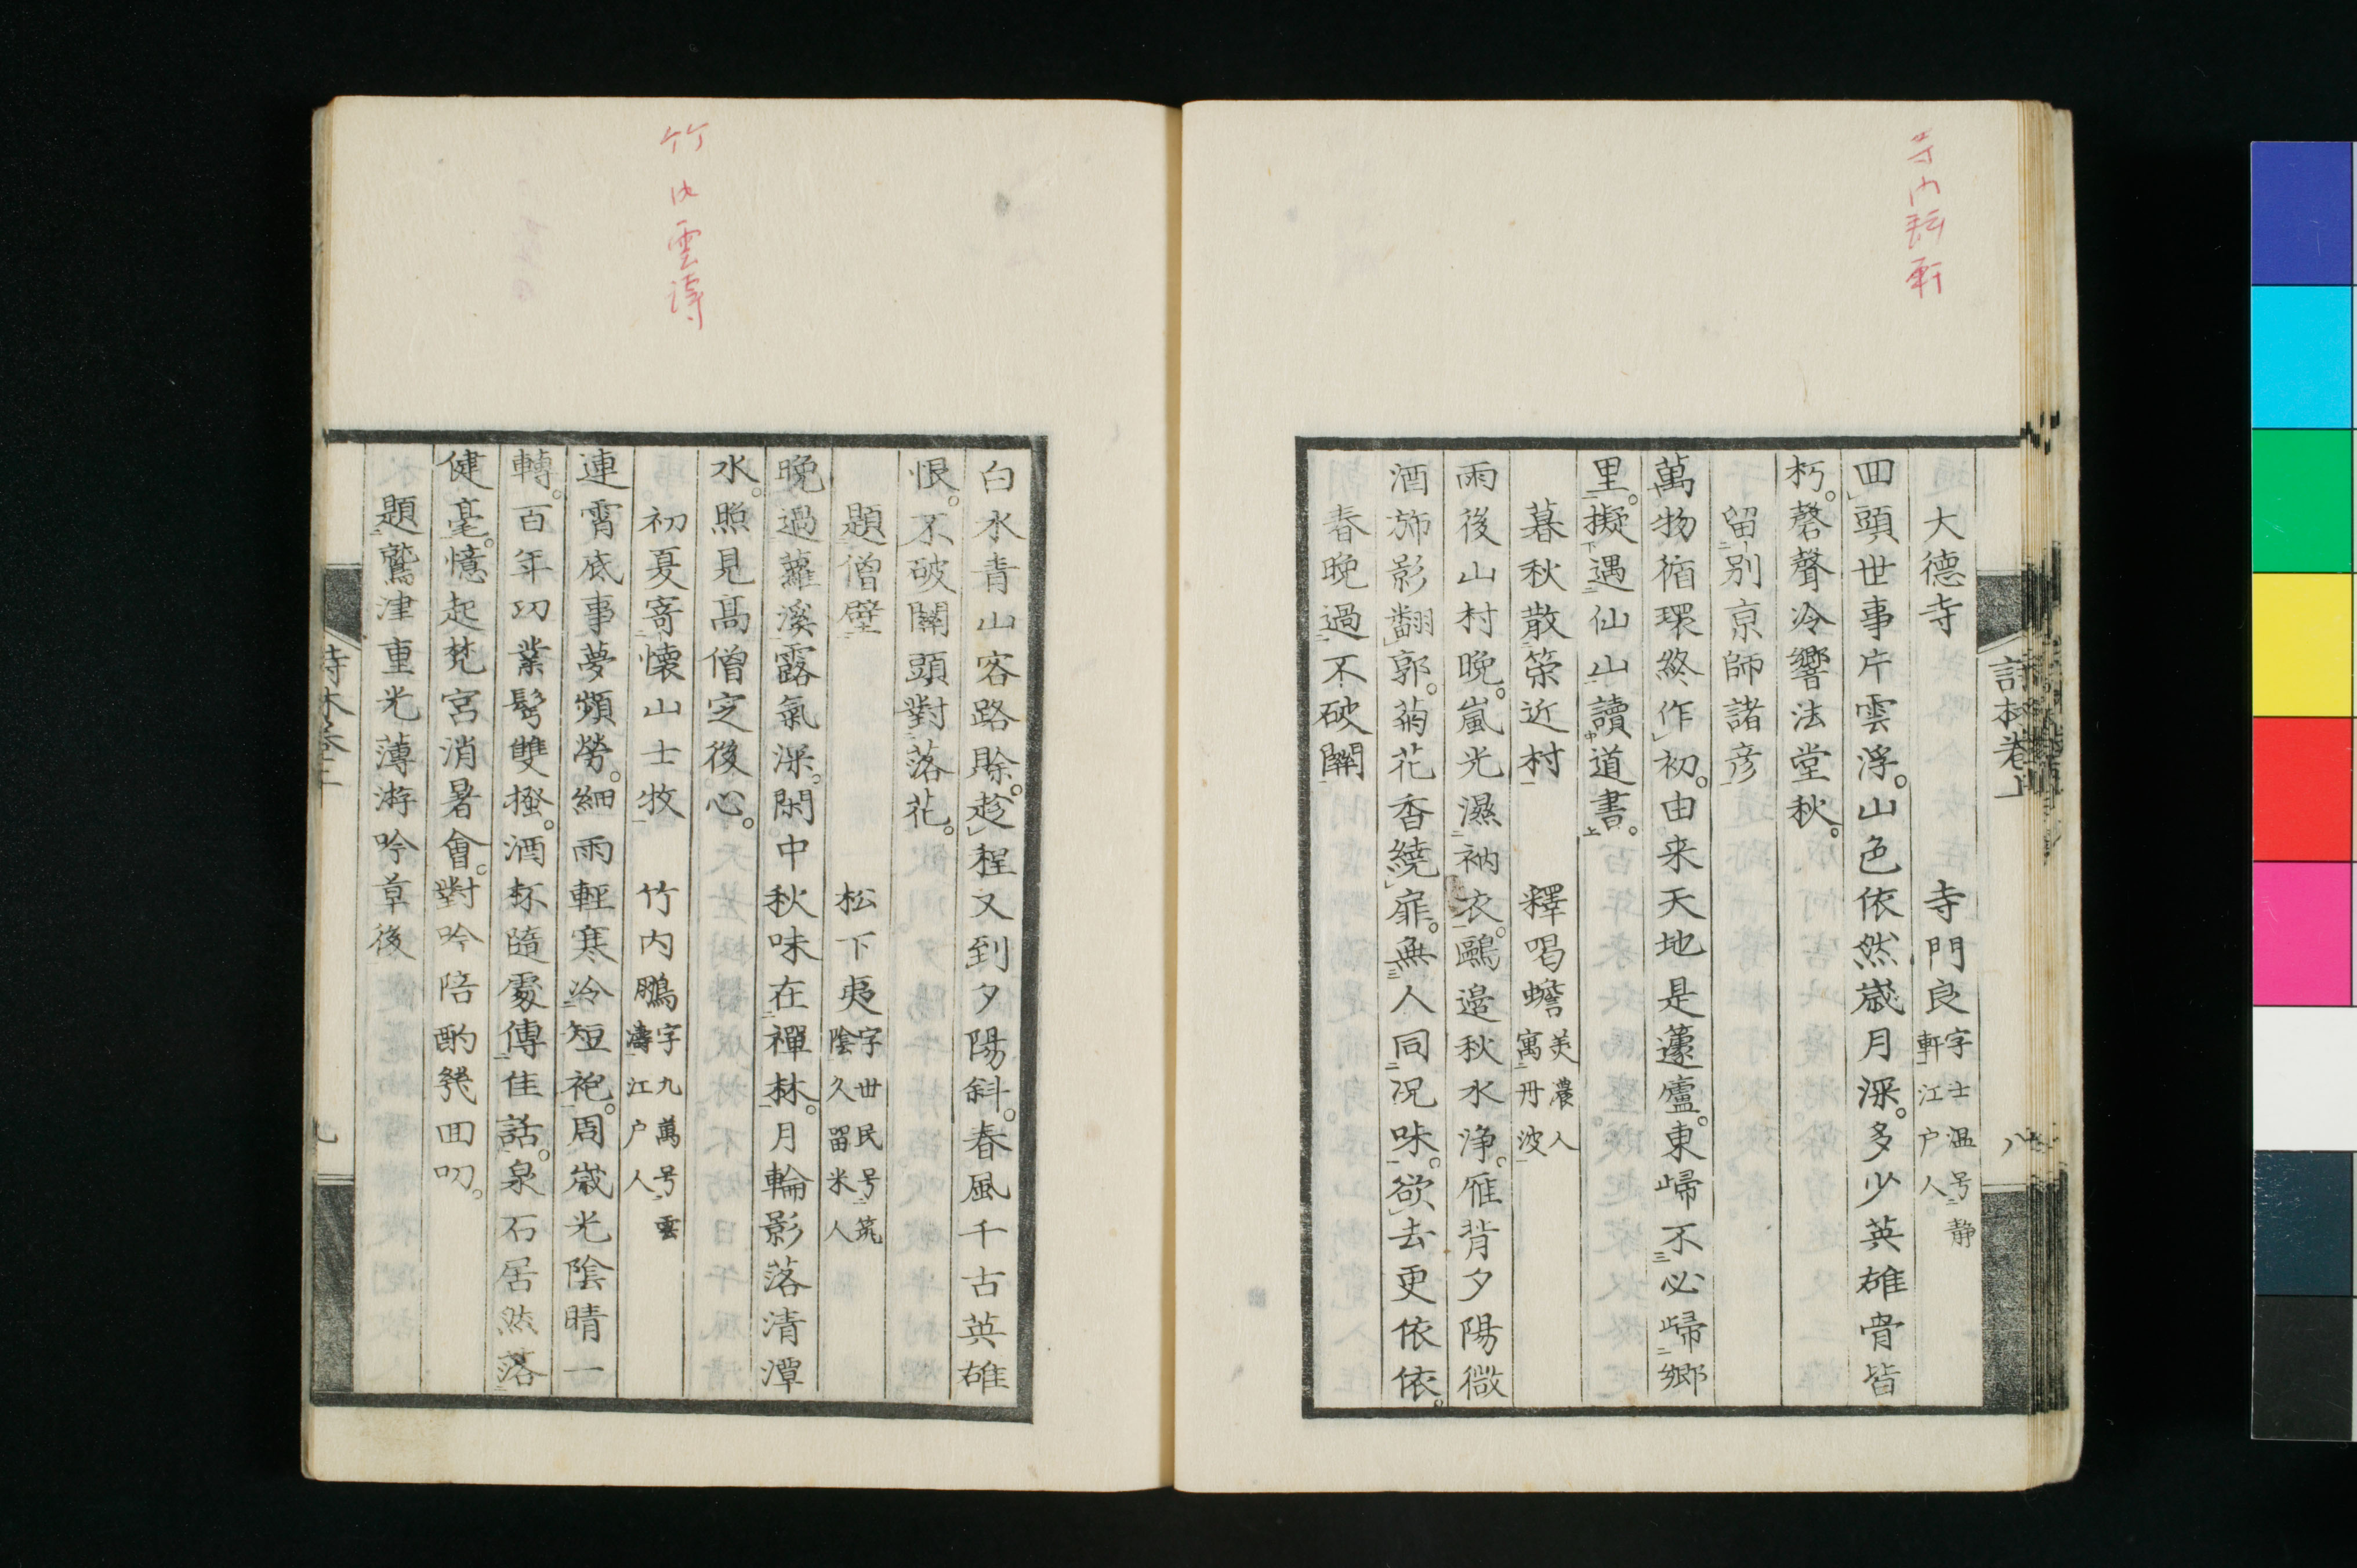 寺内静軒
詩本巻上
八
大德寺 寺門良字士温号静軒江户人
回頭世事片雲浮。山色依然歳月深。多少英雄骨皆
朽。磬聲冷響法堂秋。
留別京師諸彦
萬物循環終作初。由来天地是蘧廬。東歸不必歸郷
里。擬遇仙山讀道書。
暮秋散策近村 釋喝蟾美濃人寓丹波
雨後山村晚。嵐光濕衲衣。鷗邉秋水浄。雁背夕陽微
酒斾影翻郭。菊花香繞扉。無人同况味。欲去更依依。
春晚過不破關
白水青山客路賖。趁程又到夕陽斜。春風千古英雄
恨。不破關頭對落花。
題僧壁 松下夷字世民号筑陰久留米人
晚過蘿溪露氣深。閑中秋味在禪林。月輪影落清潭
水。照見高僧定後心。
竹内雲濤
初夏寄懷山士牧 竹内鵬字九萬号雲濤江户人
連宵底事夢頻勞。細雨輕寒冷短袍。周歳光陰晴一
轉。百年功業髩雙搔。酒杯隨處傳佳話。泉石居然落
健毫。憶起梵宮消暑會。對吟陪酌幾回叨。
題鷲津重光薄游吟草後
詩本巻上
九